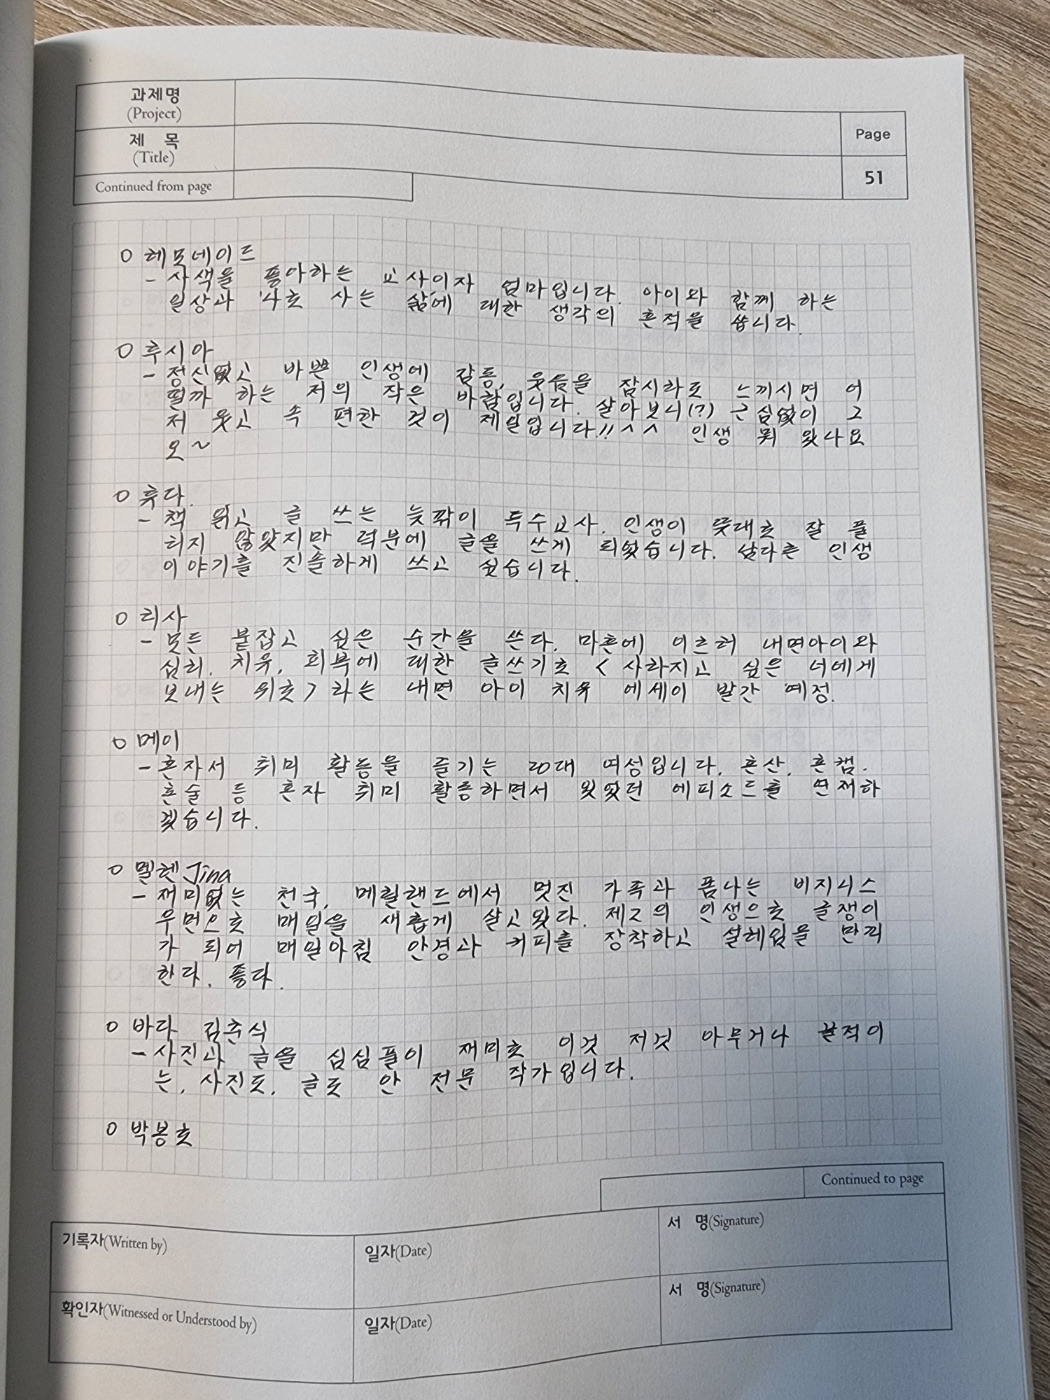 과제명
(Project)
제 목
(Title)
Page
Continued from page
51
○ 레모네이드
- 사색을 좋아하는 교사이자 엄마입니다. 아이와 함께 하는
일상과 나로 사는 삶에 대한 생각의 흔적을 씁니다.
○ 루시아
- 정신없고 바쁜 인생에 감동, 웃음을 잠시라도 느끼시면 어
떨까 하는 저의 작은 바람입니다. 살아보니(?) 근심없이 그
저 웃고 속 편한 것이 제일입니다!! ^^ 인생 뭐 있나요
오~
○ 휴다.
- 책 읽고 글 쓰는 늦깎이 특수교사. 인생이 뜻대로 잘 풀
리지 않았지만 덕분에 글을 쓰게 되었습니다. 남다른 인생
이야기를 진솔하게 쓰고 싶습니다.
○ 리사
- 모든 붙잡고 싶은 순간을 쓴다. 마흔에 이르러 내면아이와
심리, 치유, 회복에 대한 글쓰기로 <사라지고 싶은 너에게
보내는 위로>라는 내면 아이 치유 에세이 발간 예정.
○ 메이
- 혼자서 취미 활동을 즐기는 20대 여성입니다. 혼산, 혼캠,
혼술 등 혼자 취미 활동하면서 있었던 에피소드를 연재하
겠습니다.
○ 멜헨 Jina
- 재미없는 천국, 메릴랜드에서 멋진 가족과 폼나는 비지니스
우먼으로 매일을 새롭게 살고 있다. 제2의 인생으로 글쟁이
가 되어 매일아침 안경과 커피를 장착하고 설레임을 만끽
한다. 좋다.
○ 바다 김춘식
- 사진과 글을 심심풀이 재미로 이것 저것 아무거나 끌적이
는, 사진도, 글도 안 전문 작가입니다.
○ 박봉로
Continued to page
기록자(Written by)
일자(Date)
서 명(Signature)
확인자(Witnessed or Understood by)
일자(Date)
서 명(Signature)